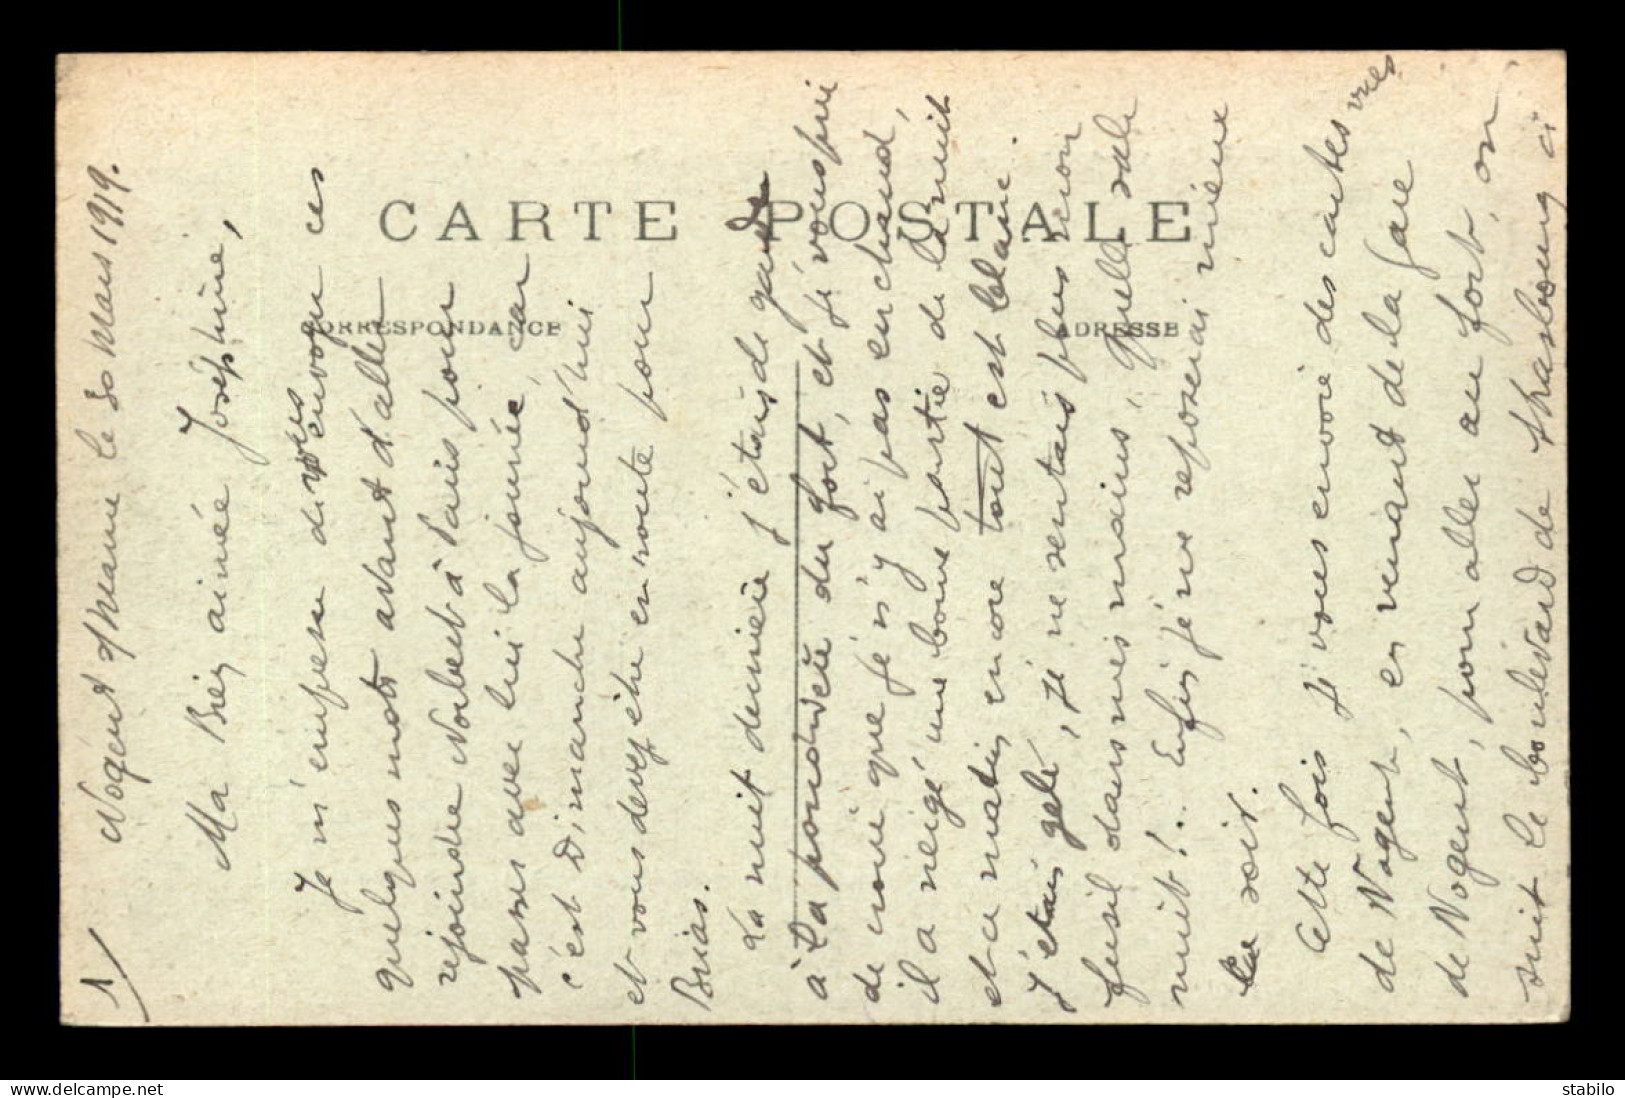 1/
Nogent s/Marne le 30 Mars 1919.
Ma Bien aimée Josephine,
Je m'empresse de vous envoyer ces
quelques mots avant d'aller
rejoindre Norbert à Paris pour
passer avec lui la journée, car
c'est Dimanche aujourd'hui
et vous devez être en route pour
Brias.
La nuit dernière j'étais de garde
à la poudrière du fort, et je vous prie
de croire que je n'y ai pas eu chaud,
il a neigé une bonne partie de la nuit
et ce matin encore tout est blanc.
J'étais gelé, je ne sentais plus mon
fusil dans mes mains, quelle sale
nuit!.. Enfin je me reposerai mieux
ce soir.
Cette fois je vous envoie des cartes vues
de Nogent, en venant de la Gare
de Nogent, pour aller au fort, on
suit le boulevard de Strasbourg ci
CARTE POSTALE
CORRESPONDANCE
ADRESSE
delcampe.net
stabilo